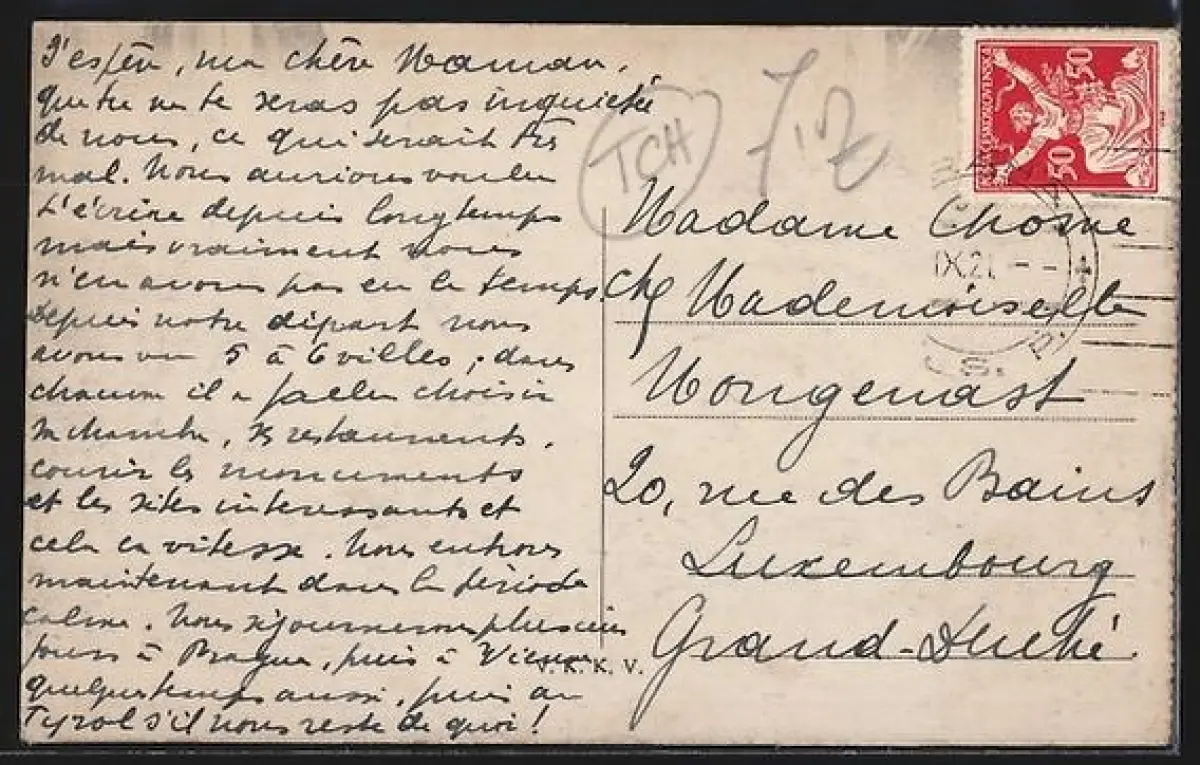 J'espère, ma chère Maman,
que tu ne te seras pas inquiétée
de nous, ce qui serait très
mal. Nous aurions voulu
t'écrire depuis longtemps
mais vraiment nous
n'en avons pas eu le temps.
Depuis notre départ nous
avons vu 5 à 6 villes ; dans
chacune il a fallu choisir
sa chambre, ses restaurants,
courir les monuments
et les sites intéressants et
cela en vitesse. Nous entrons
maintenant dans la période
calme. Nous séjournerons plusieurs
jours à Prague, puis à Vienne
quelques temps aussi, puis au
Tyrol s'il nous reste de quoi !
V.K.K.V.
TCH
50
50
IX.21
Madame Chosne
chez Mademoiselle
Mongenast
20, rue des Bains
Luxembourg
Grand-Duché.